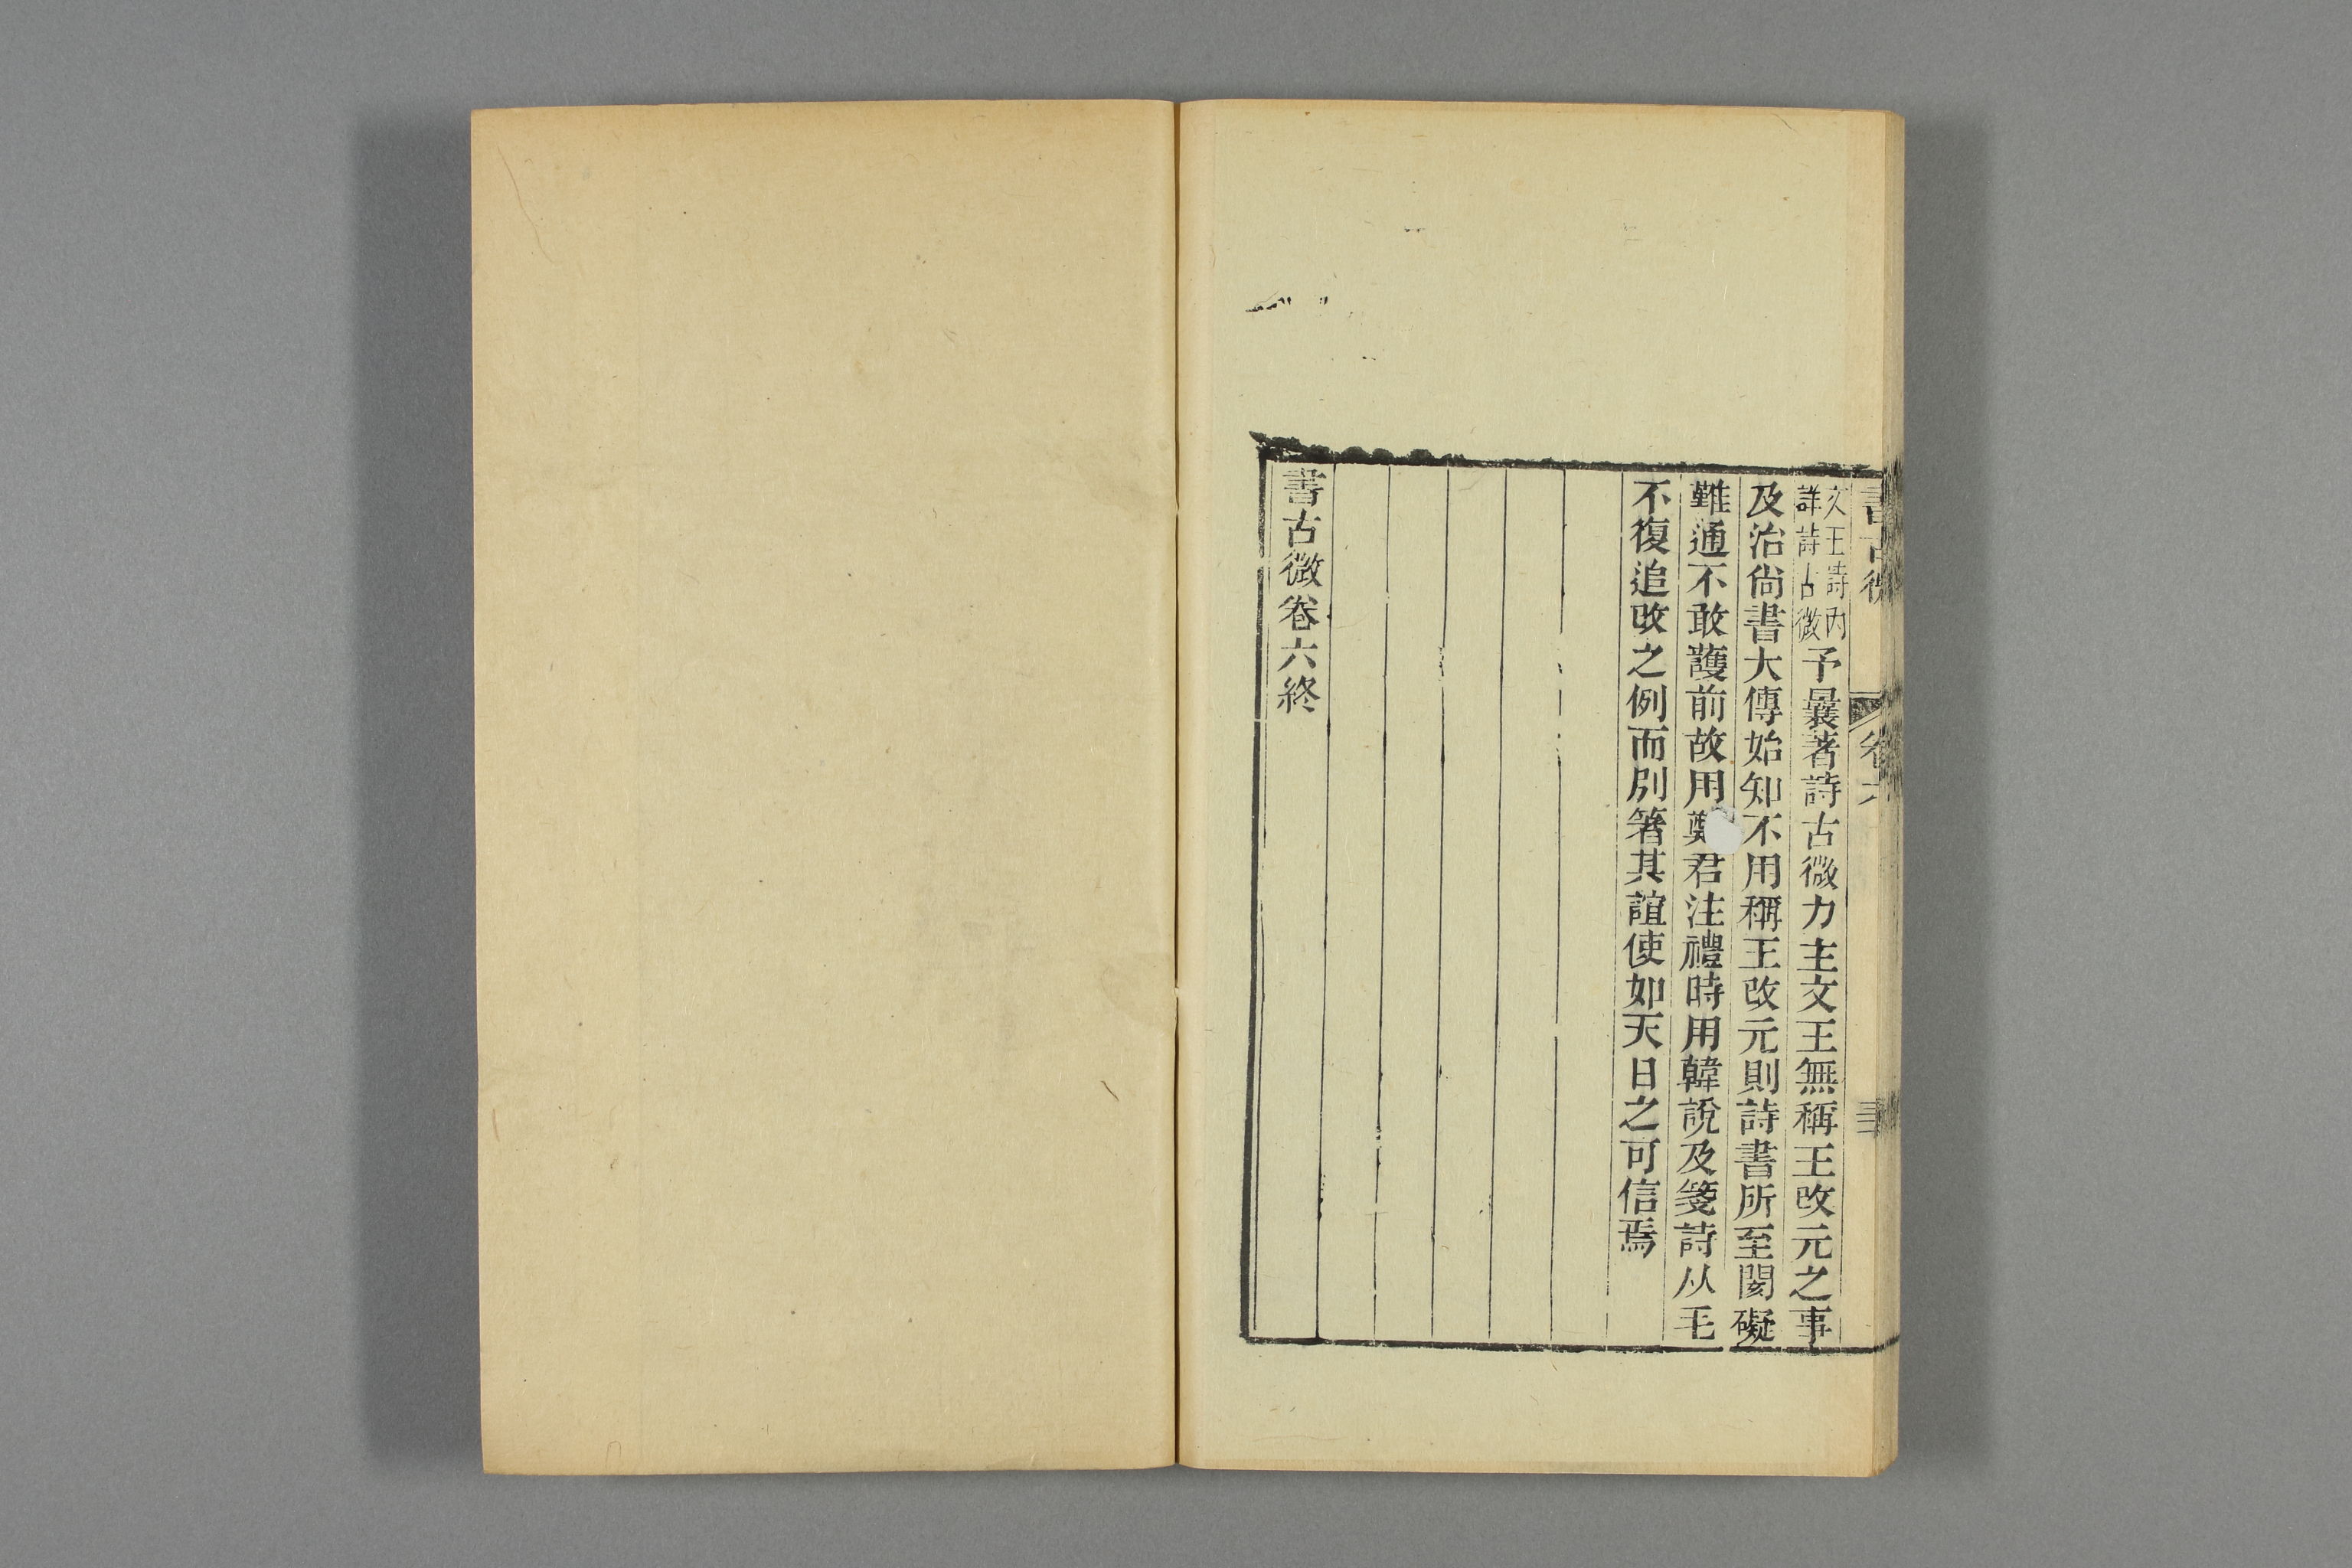 書古微 卷六
文王詩內
詳詩古微
予曩著詩古微力主文王無稱王改元之事
及治尚書大傳始知不用稱王改元則詩書所至閡礙
難通不敢護前故用鄭君注禮時用韓說及箋詩从毛
不復追改之例而別箸其誼使如天日之可信焉
書古微卷六終